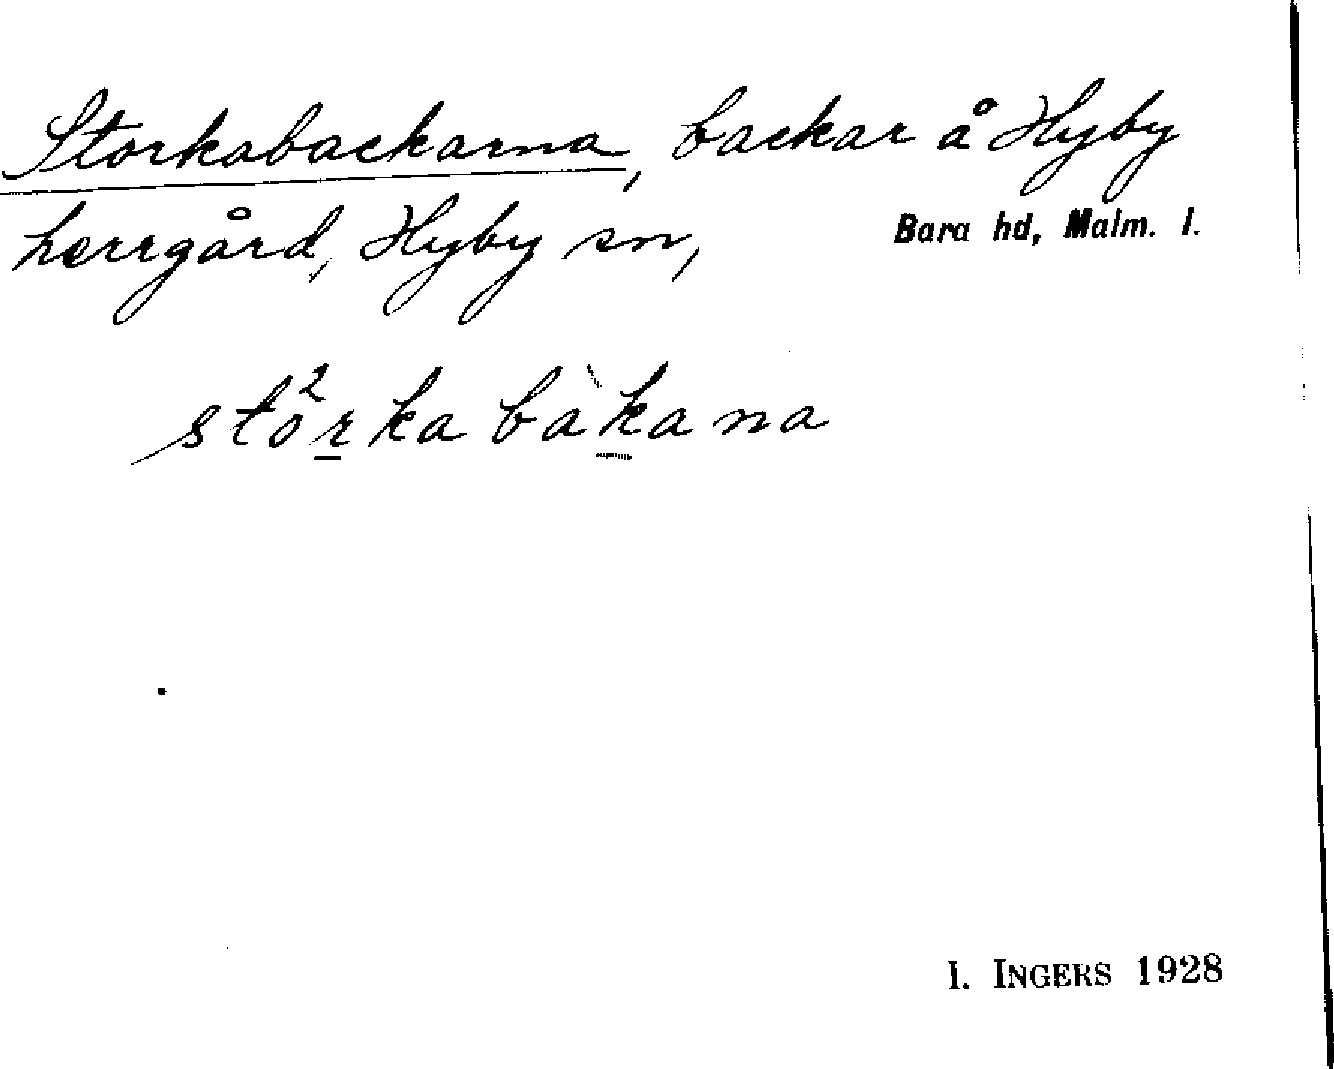 Storkabackarna, backar å Hyby
herrgård, Hyby sn, Bara hd, Malm. l.
sto²rka bàkana
I. INGERS 1928